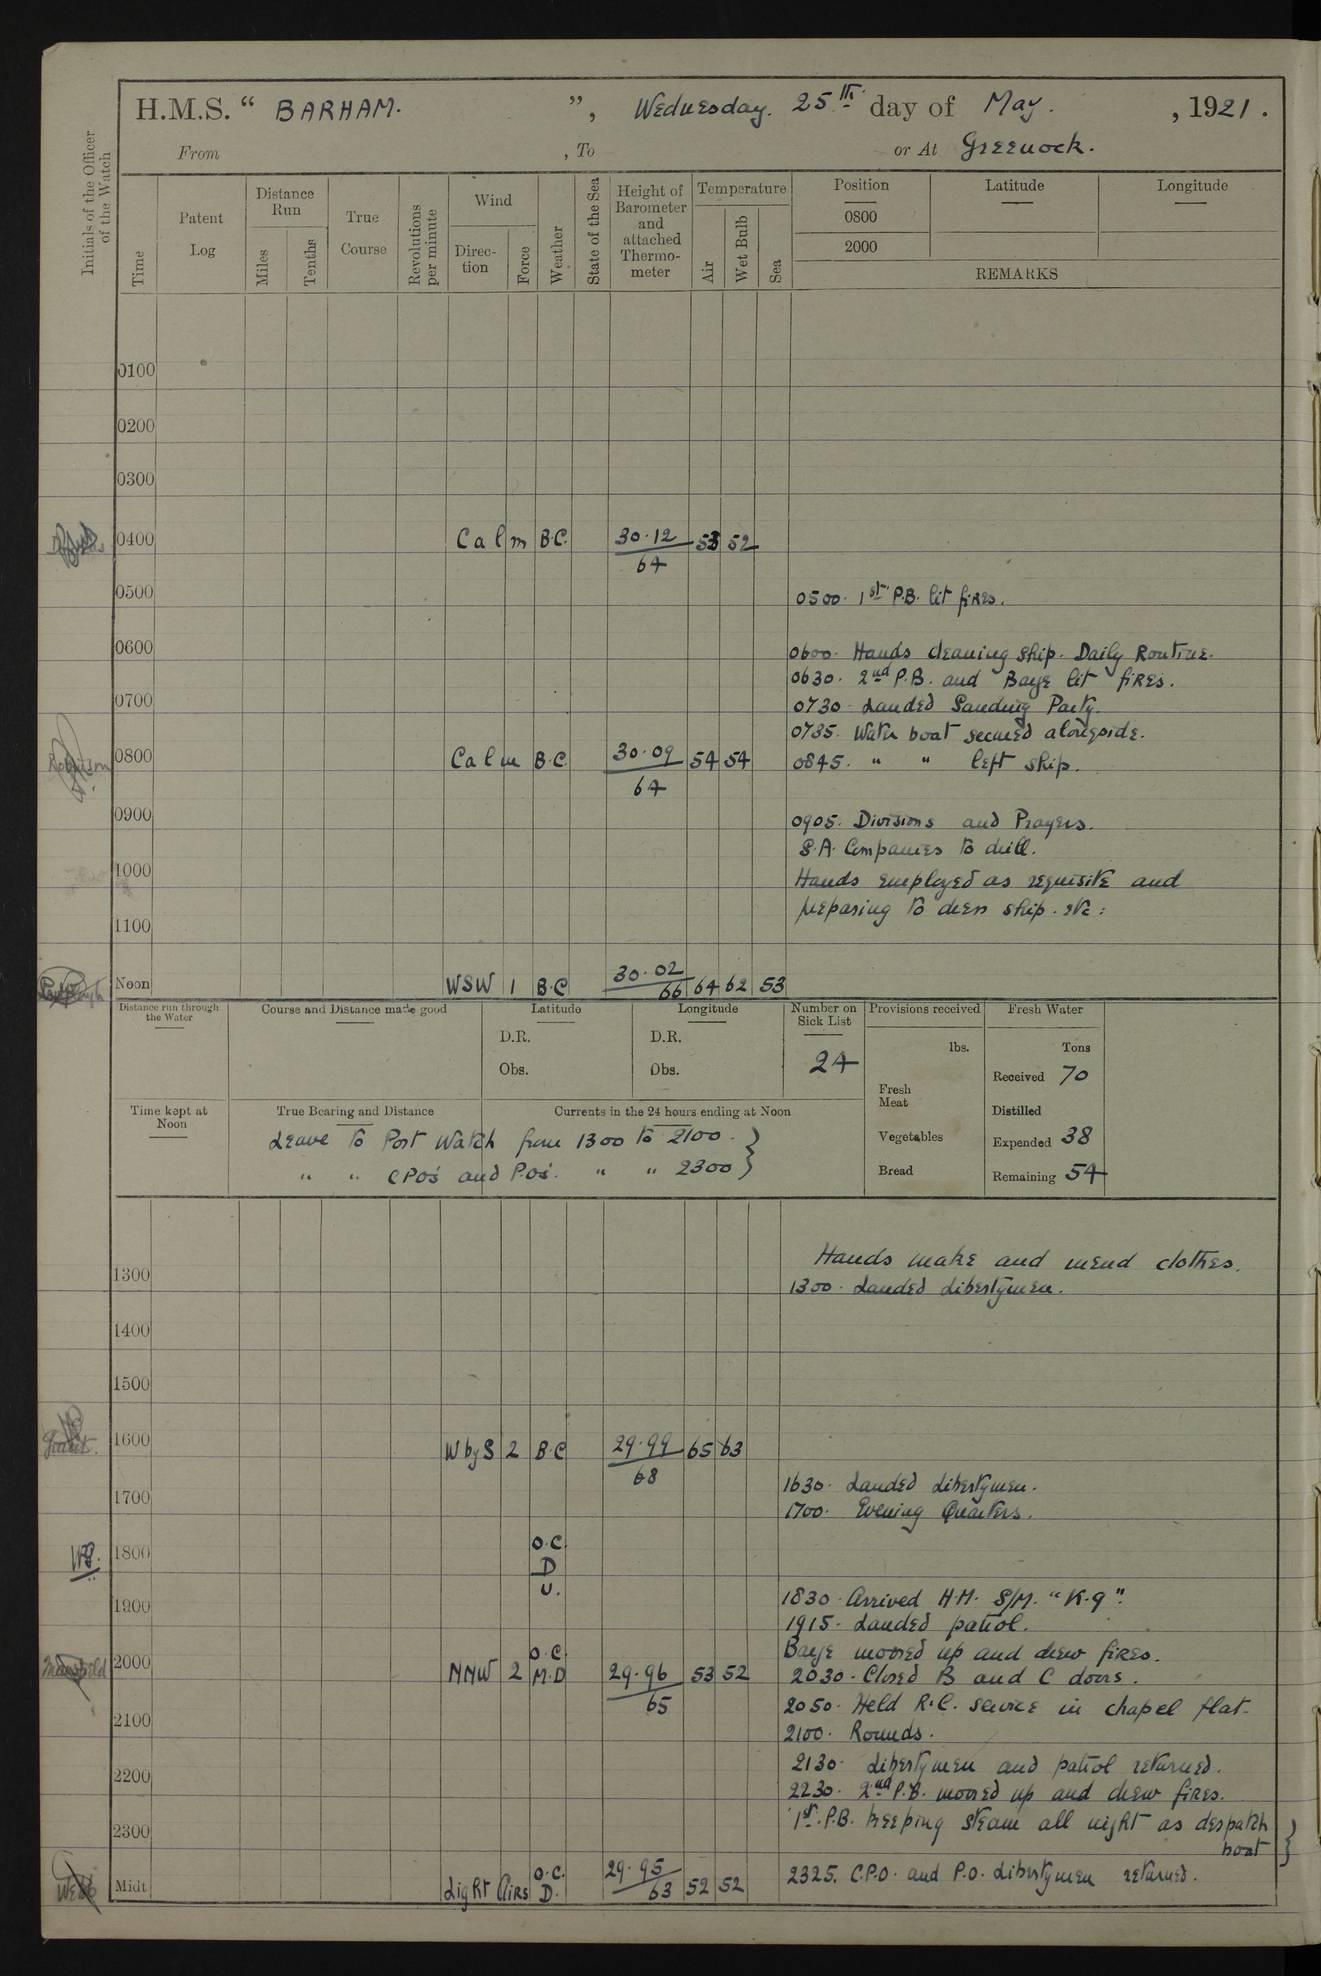 H.M.S. “ BARHAM. ”, Wednesday. 25th day of May. , 1921.
From , To or At Greenock.
Initials of the Officer of the Watch
Time
Patent Log
Distance Run
Miles
Tenths
True Course
Revolutions per minute
Wind
Direc-tion
Force
Weather
State of the Sea
Height of Barometer and attached Thermo-meter
Temperature
Air
Wet Bulb
Sea
Position Latitude Longitude
0800
2000
REMARKS
0100
0200
0300
0400 Calm B.C. 30.12 53 52
64
0500
0500. 1st P.B. lit fires.
0600
0600. Hands cleaning ship. Daily Routine.
0630. 2nd P.B. and Baye lit fires.
0700
0730 Landed Landing Party.
0735. Water boat secured alongside.
Robertson 0800 Calm B.C. 30.09 54 54
64
0845. " " left ship.
0900
0905. Divisions and Prayers.
S.A. Companies to drill.
1000
Hands employed as requisite and
preparing to dress ship. etc:
1100
Noon WSW 1 B.C 30.02 64 62 53
66
Distance run through the Water
Course and Distance made good
Latitude
D.R.
Obs.
Longitude
D.R.
Obs.
Number on Sick List
24
Provisions received
lbs.
Fresh Meat
Vegetables
Bread
Fresh Water
Tons
Received 70
Distilled
Expended 38
Remaining 54
Time kept at Noon
True Bearing and Distance
Currents in the 24 hours ending at Noon
Leave to Port Watch from 1300 to 2100.
" " CPO's and P.O's. " " 2300
Hands make and mend clothes.
1300
1300. Landed Libertymen.
1400
1500
Grant. 1600 W by S 2 B.C 29.99 65 63
68
1630. Landed Libertymen.
1700
1700. Evening Quarters.
1800 O.C.
D
U.
1830. Arrived H.M. S/M. "K.9".
1900
1915. Landed patrol.
Baye moored up and drew fires.
Mansfield 2000 NNW 2 O.C. M.D 29.96 53 52
65
2030. Closed B and C doors.
2050. Held R.C. service in chapel flat.
2100
2100. Rounds.
2130. Libertymen and patrol returned.
2200
2230. 2nd P.B. moored up and drew fires.
1st. P.B. keeping steam all night as despatch
boat
2300
Webb Midt Light Airs O.C. D. 29.95 52 52
63
2325. C.P.O. and P.O. Libertymen returned.